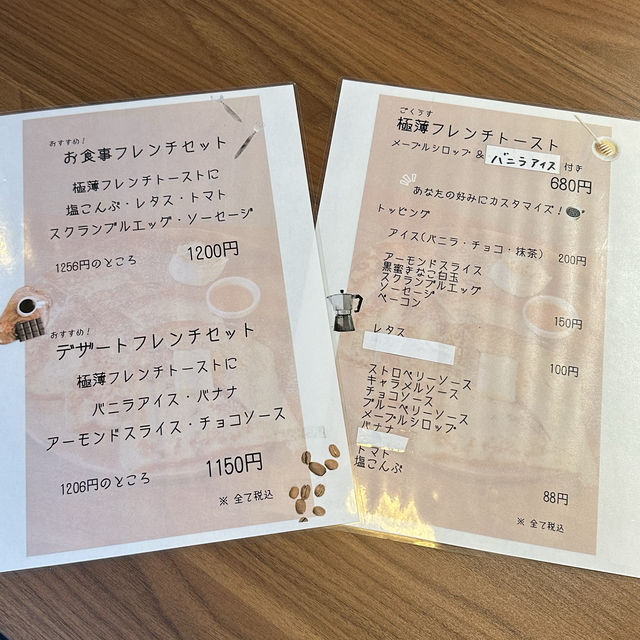 おすすめ!
お食事フレンチセット
極薄フレンチトーストに
塩こんぶ・レタス・トマト
スクランブルエッグ・ソーセージ
1256円のところ 1200円
おすすめ!
デザートフレンチセット
極薄フレンチトーストに
バニラアイス・バナナ
アーモンドスライス・チョコソース
1206円のところ 1150円
※ 全て税込
ごくうす
極薄フレンチトースト
メープルシロップ & バニラアイス 付き
680円
あなたの好みにカスタマイズ!
トッピング
アイス(バニラ・チョコ・抹茶) 200円
アーモンドスライス
黒蜜きなこ白玉
スクランブルエッグ
ソーセージ
ベーコン
150円
レタス
100円
ストロベリーソース
キャラメルソース
チョコソース
ブルーベリーソース
メープルシロップ
バナナ
トマト
塩こんぶ
88円
※ 全て税込